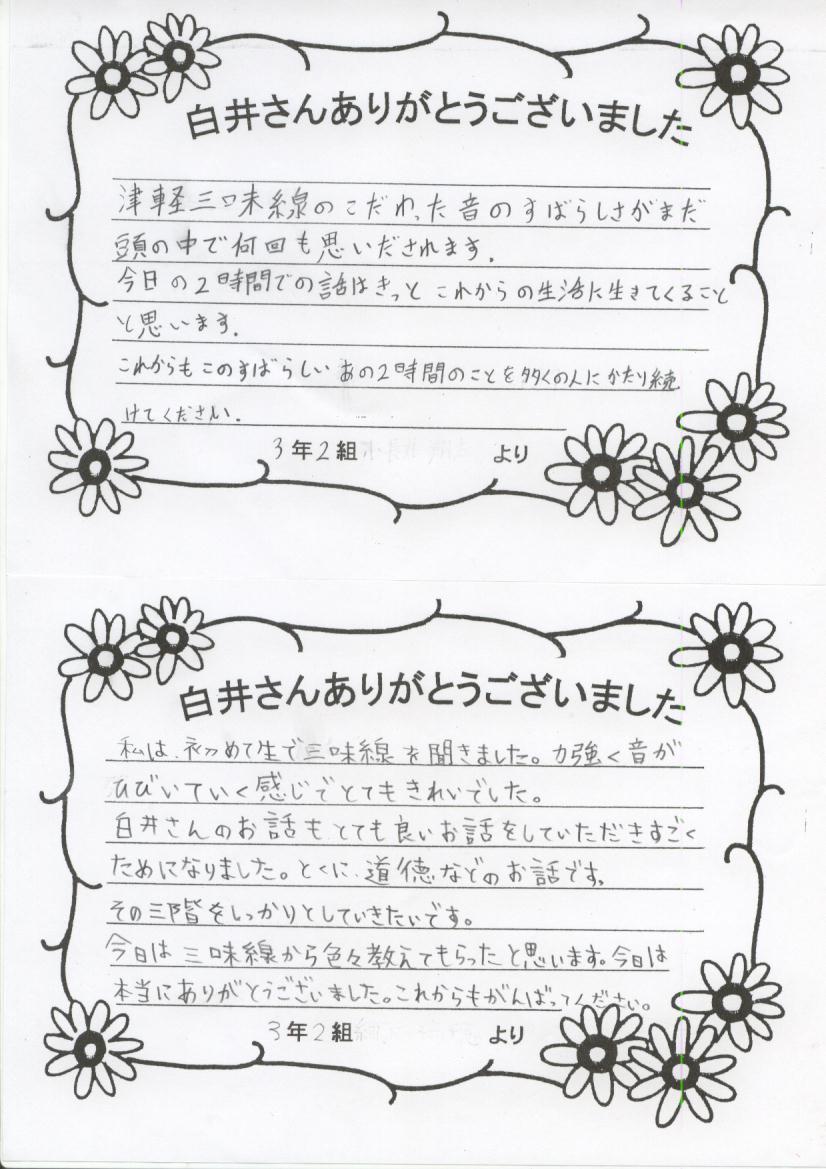 白井さんありがとうございました
津軽三味線のこだわった音のすばらしさがまだ
頭の中で何回も思いだされます.
今日の2時間での話はきっと これからの生活に生きてくること
と思います.
これからもこのすばらしいあの2時間のことを多くの人にかたり続
けてください.
3年2組 より
白井さんありがとうございました
私は、初めて生で三味線を聞きました。力強く音が
ひびいていく感じでとてもきれいでした。
白井さんのお話もとても良いお話をしていただきすごく
ためになりました。とくに、道徳などのお話です。
その三階をしっかりとしていきたいです。
今日は三味線から色々教えてもらったと思います。今日は
本当にありがとうございました。これからもがんばってください。
3年2組 より